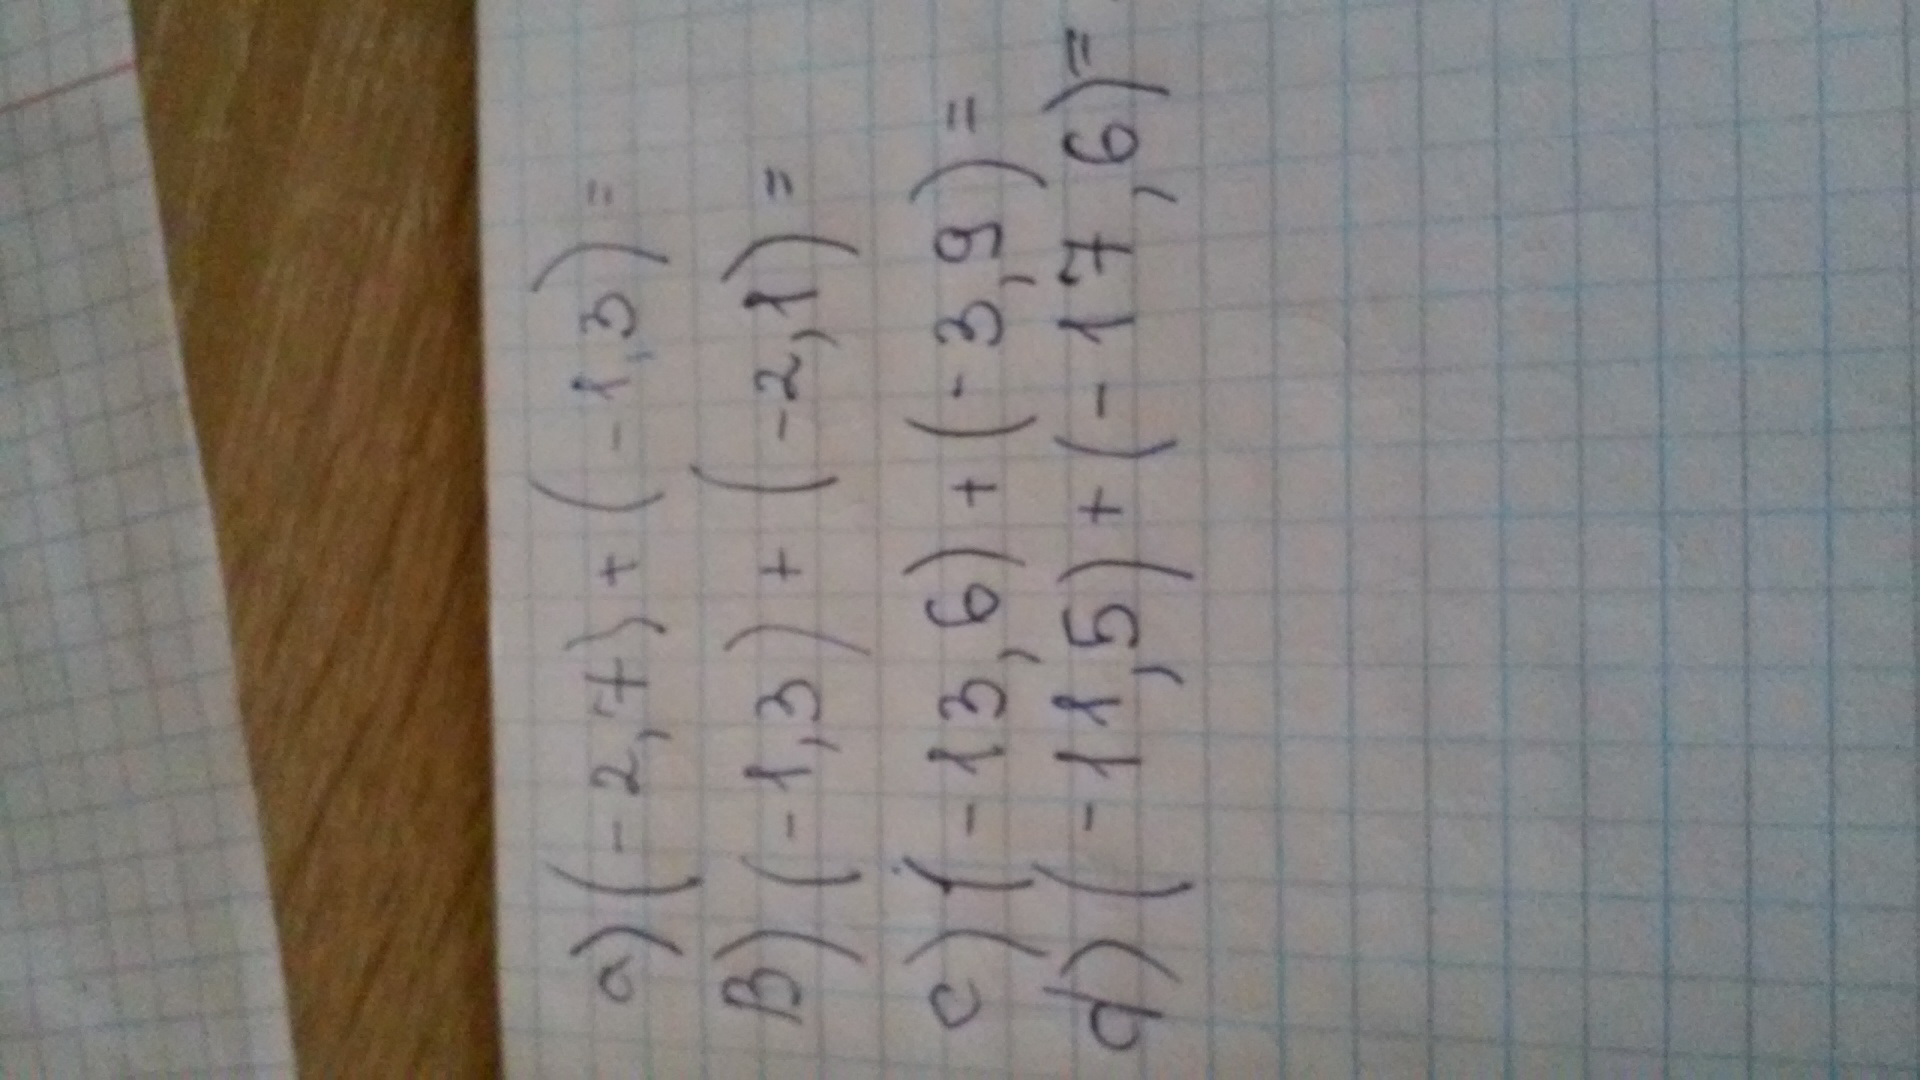 a) (-2,7) + (-1,3) =
B) (-1,3) + (-2,1) =
c) (-13,6) + (-3,9) =
d) (-11,5) + (-17,6) =